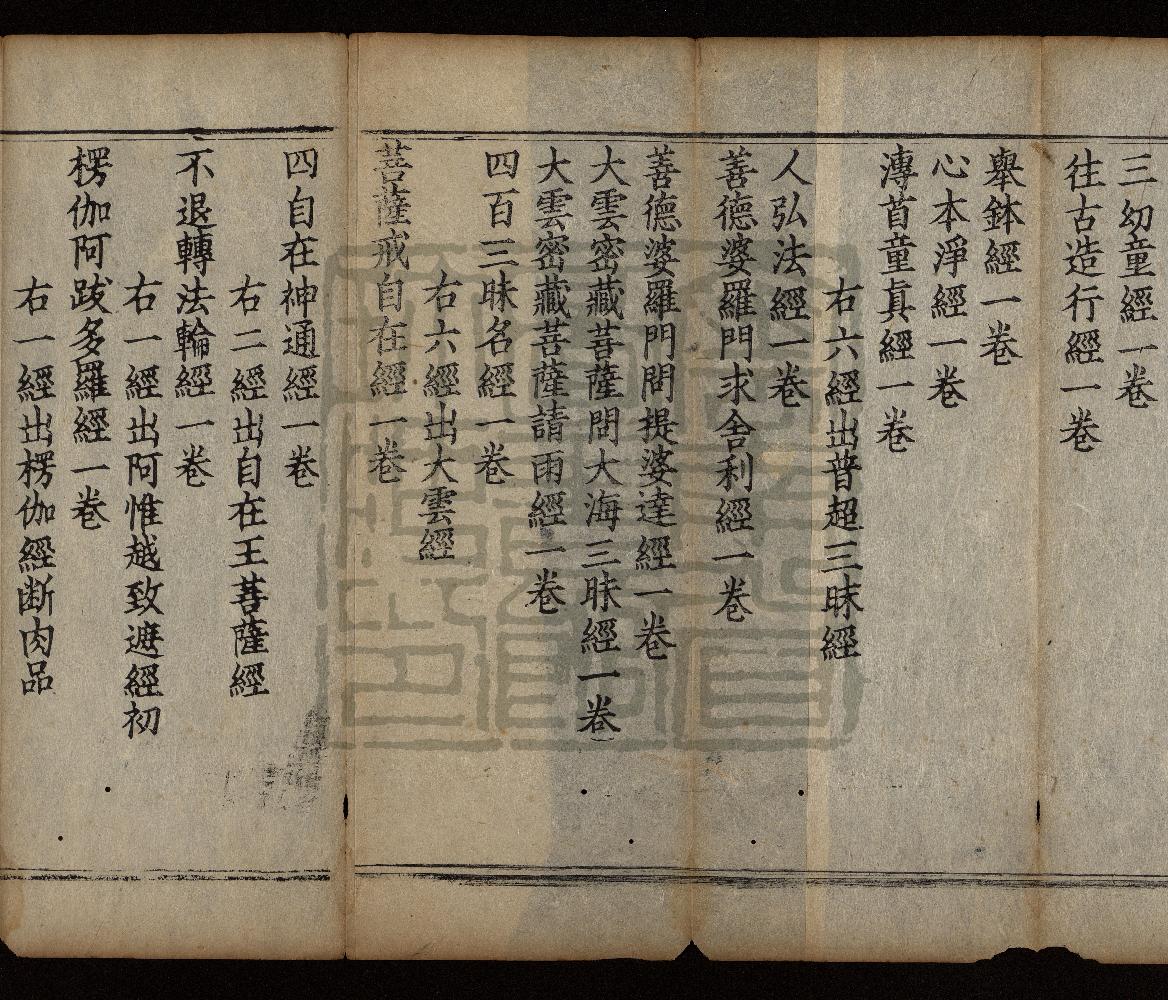 三幼童經一卷
往古造行經一卷
舉鉢經一卷
心本淨經一卷
溥首童真經一卷
右六經出普超三昧經
人弘法經一卷
善德婆羅門求舍利經一卷
善德婆羅門問提婆達經一卷
大雲密藏菩薩問大海三昧經一卷
大雲密藏菩薩請雨經一卷
四百三昧名經一卷
右六經出大雲經
菩薩戒自在經一卷
四自在神通經一卷
右二經出自在王菩薩經
不退轉法輪經一卷
右一經出阿惟越致遮經初
楞伽阿跋多羅經一卷
右一經出楞伽經断肉品